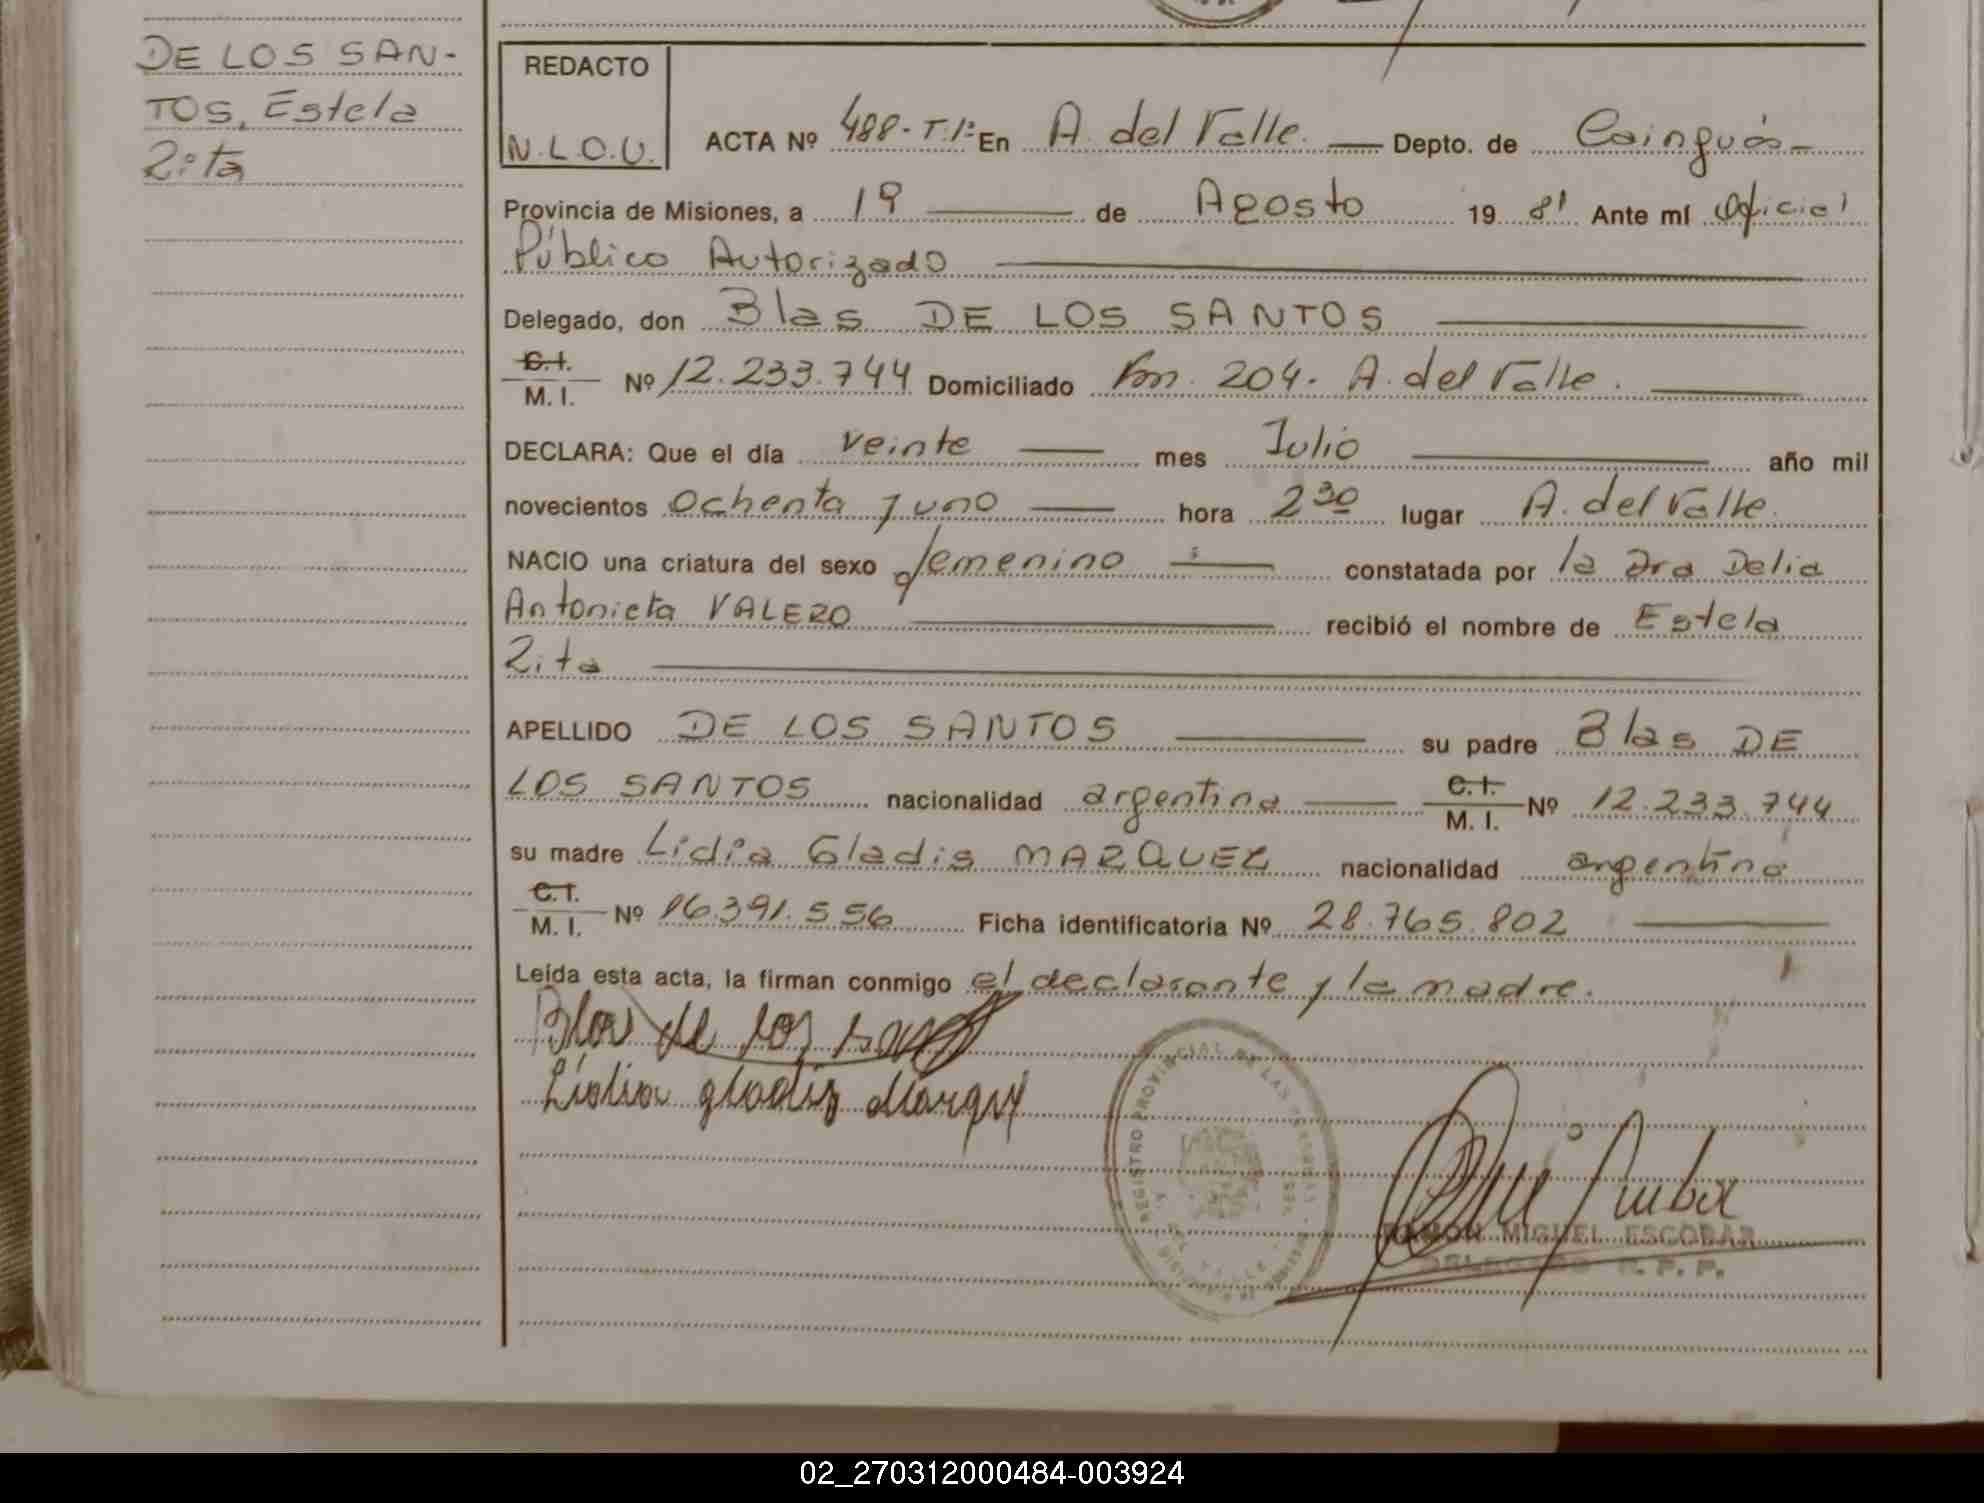 DE LOS SAN-
TOS, Estela
Zita
REDACTO
N.L.O.U.
ACTA Nº 488-T.1º En A. del Valle. Depto. de Cainguás
Provincia de Misiones, a 19 de Agosto 19 81 Ante mí Oficial
Público Autorizado
Delegado, don Blas DE LOS SANTOS
C.I.
M. I. Nº 12.233.744 Domiciliado Km. 204. A. del Valle.
DECLARA: Que el día veinte mes Julio año mil
novecientos ochenta y uno hora 2 30 lugar A. del Valle.
NACIO una criatura del sexo femenino constatada por la Dra Delia
Antonieta VALERO recibió el nombre de Estela
Zita
APELLIDO DE LOS SANTOS su padre Blas DE
LOS SANTOS nacionalidad argentina C.I. M. I. Nº 12.233.744
su madre Lidia Gladis MARQUEZ nacionalidad argentina
C.I.
M. I. Nº 16.391.556 Ficha identificatoria Nº 28.765.802
Leída esta acta, la firman conmigo el declarante y la madre.
Blas de los santos
Lidia gladis Marquez
REGISTRO PROVINCIAL DE LAS PERSONAS
RAMON MIGUEL ESCOBAR
DELEGADO R. P. P.
02_270312000484-003924